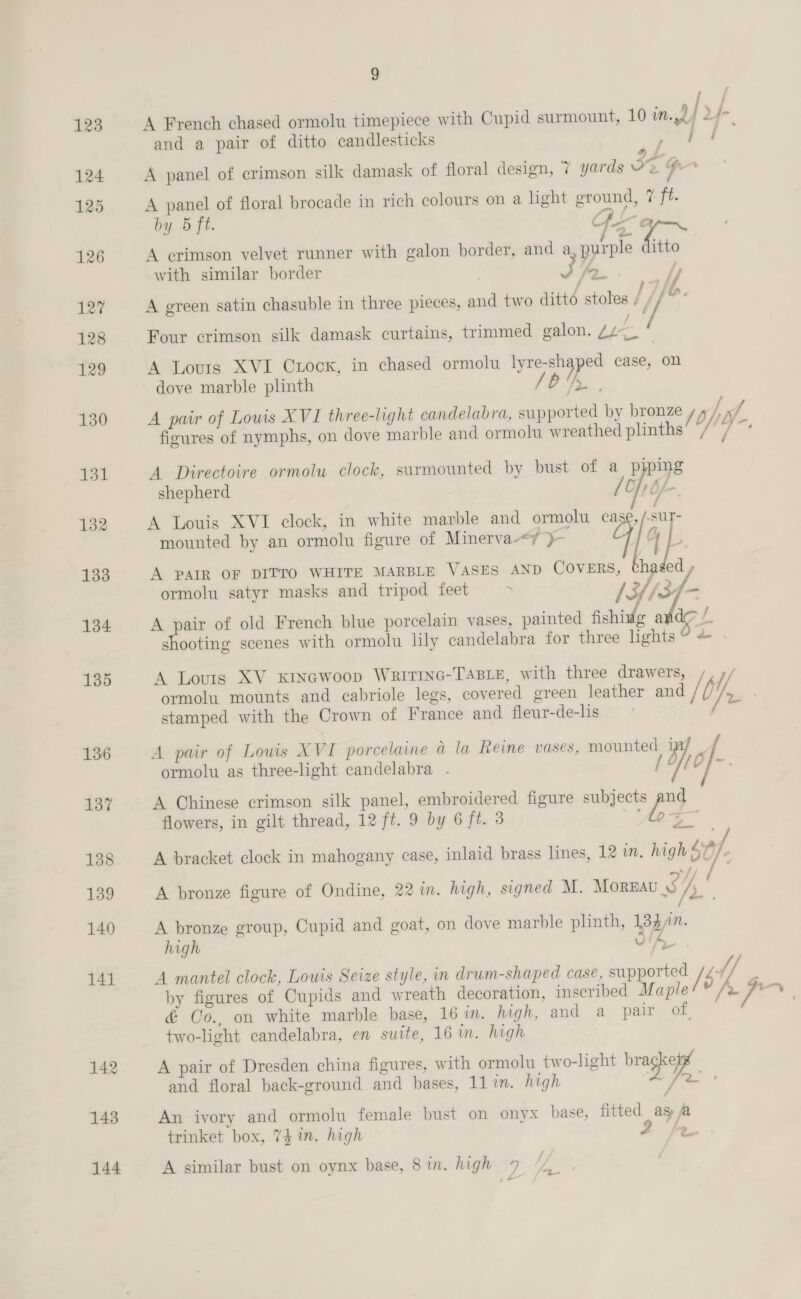 9
123 A French chased ormolu timepiece with Cupid surmount, 10 in.,
and a pair of ditto candlesticks
124 A panel of crimson silk damask of floral design, 7 yards
125 A panel of floral brocade in rich colours on a light ground, 7 ft.
by 5 ft.
126 A crimson velvet runner with galon border, and a purple ditto
with similar border
127 A green satin chasuble in three pieces, and two ditto stoles
128 Four crimson silk damask curtains, trimmed galon.
129 A Louis XVI Clock, in chased ormolu lyre-shaped case, on
dove marble plinth
130 A pair of Louis XVI three-light candelabra, supported by bronze
figures of nymphs, on dove marble and ormolu wreathed plinths
131 A Directoire ormolu clock, surmounted by bust of a piping
shepherd
132 A Louis XVI clock, in white marble and ormolu case, sur-
mounted by an ormolu figure of Minerva
133 A PAIR OF DITTO WHITE MARBLE VASES AND COVERS, chased
ormolu satyr masks and tripod feet
134 A pair of old French blue porcelain vases, painted fishing and
shooting scenes with ormolu lily candelabra for three lights
135 A Louis XV KINGWOOD WRITING-TABLE, with three drawers,
ormolu mounts and cabriole legs, covered green leather and
stamped with the Crown of France and fleur-de-lis
136 A pair of Louis XVI porcelaine à la Reine vases, mounted in
ormolu as three-light candelabra .
137 A Chinese crimson silk panel, embroidered figure subjects and
flowers, in gilt thread, 12 ft. 9 by 6 ft. 3
138 A bracket clock in mahogany case, inlaid brass lines, 12 in. high
139 A bronze figure of Ondine, 22 in. high, signed M. Moreau
140 A bronze group, Cupid and goat, on dove marble plinth, 13½ in.
high
141 A mantel clock, Louis Seize style, in drum-shaped case, supported
by figures of Cupids and wreath decoration, inscribed Maple
& Co., on white marble base, 16 in. high, and a pair of
two-light candelabra, en suite, 16 in. high
142 A pair of Dresden china figures, with ormolu two-light brackets
and floral back-ground and bases, 11 in. high
143 An ivory and ormolu female bust on onyx base, fitted as a
trinket box, 7½ in. high
144 A similar bust on oynx base, 8 in. high